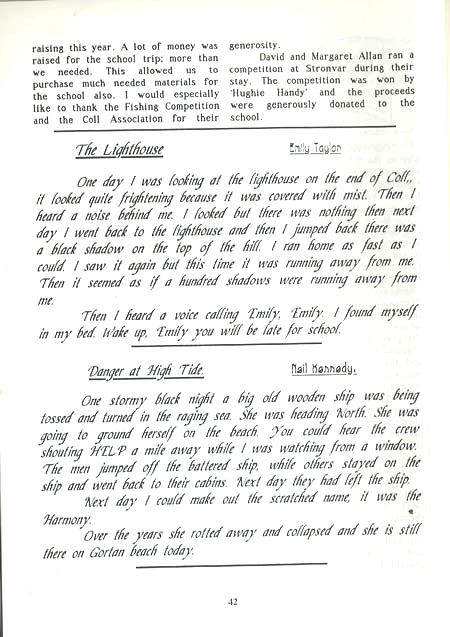 raising this year. A lot of money was
raised for the school trip; more than
we needed. This allowed us to
purchase much needed materials for
the school also. I would especially
like to thank the Fishing Competition
and the Coll Association for their
generosity.
David and Margaret Allan ran a
competition at Stronvar during their
stay. The competition was won by
'Hughie Handy' and the proceeds
were generously donated to the
school.
The Lighthouse
Emily Taylor
One day I was looking at the lighthouse on the end of Coll,,
it looked quite frightening because it was covered with mist. Then I
heard a noise behind me. I looked but there was nothing then next
day I went back to the lighthouse and then I jumped back there was
a black shadow on the top of the hill. I ran home as fast as I
could. I saw it again but this time it was running away from me.
Then it seemed as if a hundred shadows were running away from
me.
Then I heard a voice calling Emily, Emily. I found myself
in my bed. Wake up, Emily you will be late for school.
Danger at High Tide.
Neil Kennedy.
One stormy black night a big old wooden ship was being
tossed and turned in the raging sea. She was heading North. She was
going to ground herself on the beach. You could hear the crew
shouting HELP a mile away while I was watching from a window.
The men jumped off the battered ship, while others stayed on the
ship and went back to their cabins. Next day they had left the ship.
Next day I could make out the scratched name, it was the
Harmony.
Over the years she rotted away and collapsed and she is still
there on Gortan beach today.
42